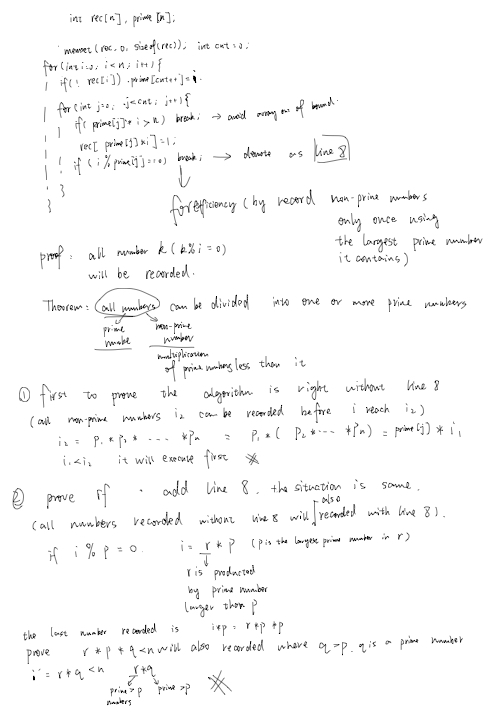 int rec[n], prime[n];
memset(rec, 0, sizeof(rec)); int cnt=0;
for(int i=0; i<n; i++){
if(! rec[i]) prime[cnt++]=i.
for(int j=0; j<cnt; j++){
if( prime[j]*i > n) break; → avoid array out of bound.
rec[ prime[j]*i]=1;
if ( i % prime[j]==0) break; → denote as line 8
}
}
for efficiency ( by record non-prime numbers
only once using
the largest prime number
it contains)
proof: all number k ( k%i=0)
will be recorded.
Theorem: all numbers can be divided into one or more prime numbers
prime numbe
non-prime number
multiplication
of prime numbers less than it
① first to prove the algorithm is right without line 8
(all non-prime numbers i2 can be recorded before i reach i2)
i2 = P1 * P2 * ---- *Pn = P1 * ( P2 * --- * Pn) = prime[j] * i1
i1<i2 it will execute first ※
② prove if add line 8, the situation is same.
(all numbers recorded without line 8 will also recorded with line 8).
if i % p = 0. i = r * p (p is the largest prime number in r)
r is producted
by prime number
larger than p
the last number recorded is i*p = r*p*p
prove r * p * q <n will also recorded where q >p. q is a prime number
i' = r*q <n r*q
prime >p numbers
prime >p
※